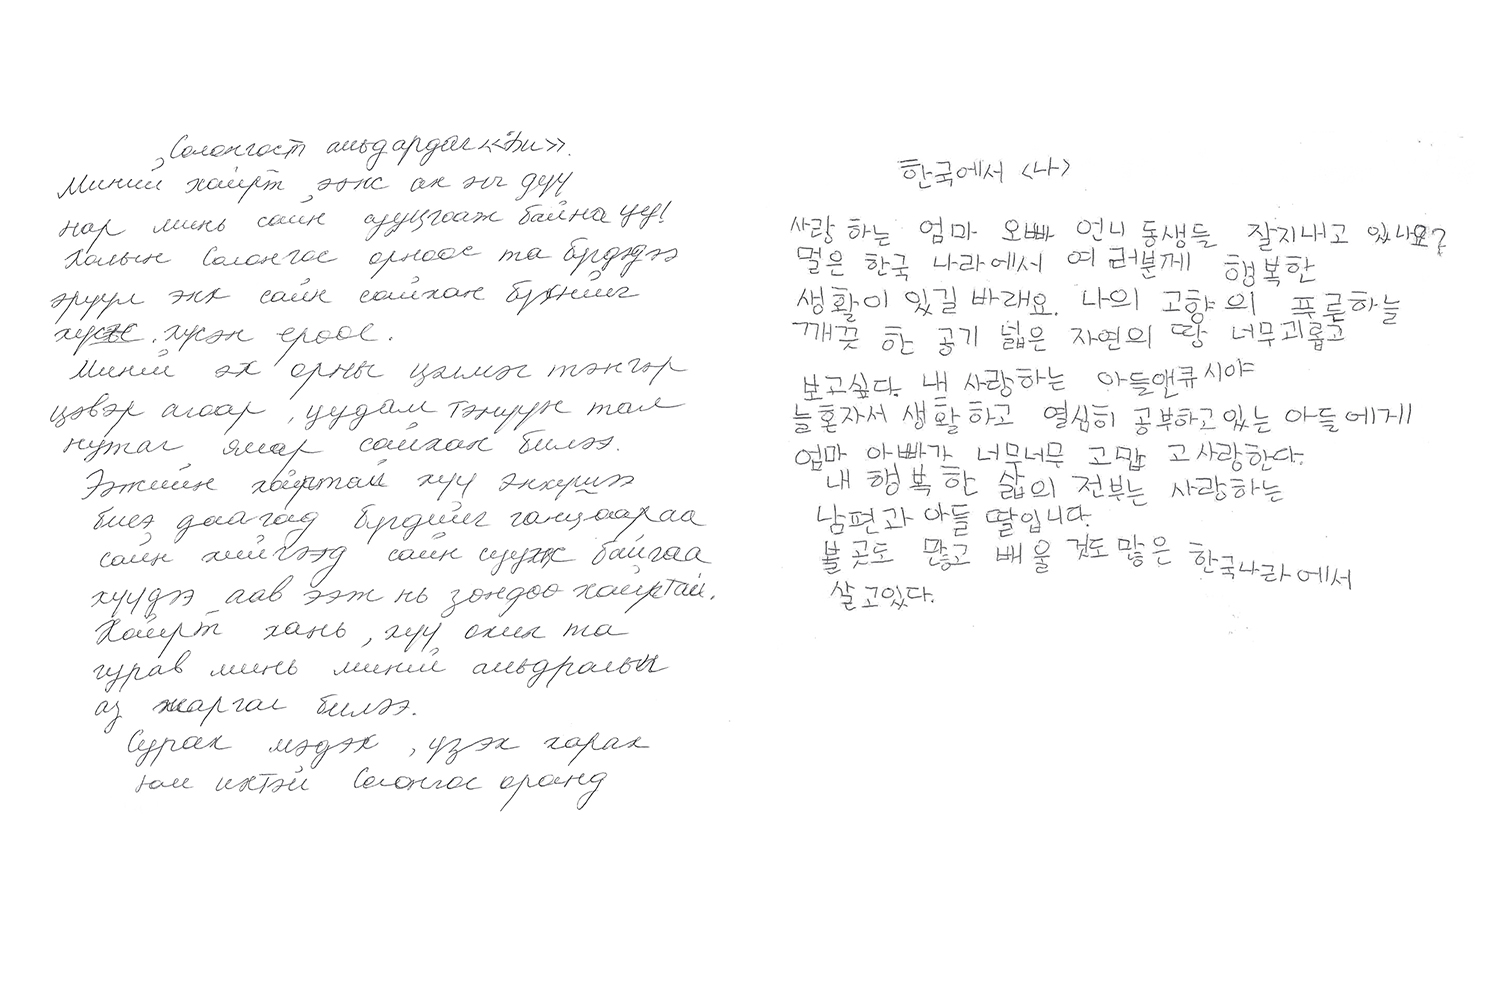 Солонгост амьдардаг «Би».
Миний хайрт ээж ах эгч дүү
нар минь сайн сууцгааж байна уу!
Халуун Солонгос орноос та бүгдэдээ
эрүүл энх сайн сайхан бүхнийг
хүсэн ерөөе.
Миний эх орны цэлмэг тэнгэр
цэвэр агаар, уудам тэнүүн тал
нутаг ямар сайхан билээ.
Ээжийн хайртай хүү энхүшээ
биеэ даагад бүгдийг ганцаараа
сайн хийгээд сайн сууж байгаа
хүүдээ аав ээж нь зөндөө хайртай.
Хайрт хань, хүү охин та
гурав минь миний амьдралын
аз жаргал билээ.
Сурах мэдэх, үзэх харах
юм ихтэй Солонгос оронд
한국에서 <나>
사랑 하는 엄마 오빠 언니 동생들 잘지내고 있나요?
멀은 한국 나라에서 여러분께 행복한
생활이 있길 바래요. 나의 고향의 푸른하늘
깨끗 한 공기 넓은 자연의 땅 너무괴롭고
보고싶다. 내 사랑하는 아들앤큐시야
늘혼자서 생활하고 열심히 공부하고있는 아들에게
엄마 아빠가 너무너무 고맙 고사랑한다.
내 행복한 삶의 전부는 사랑하는
남편과 아들 딸입니다.
볼곳도 많고 배울 것도많은 한국나라에서
살고있다.